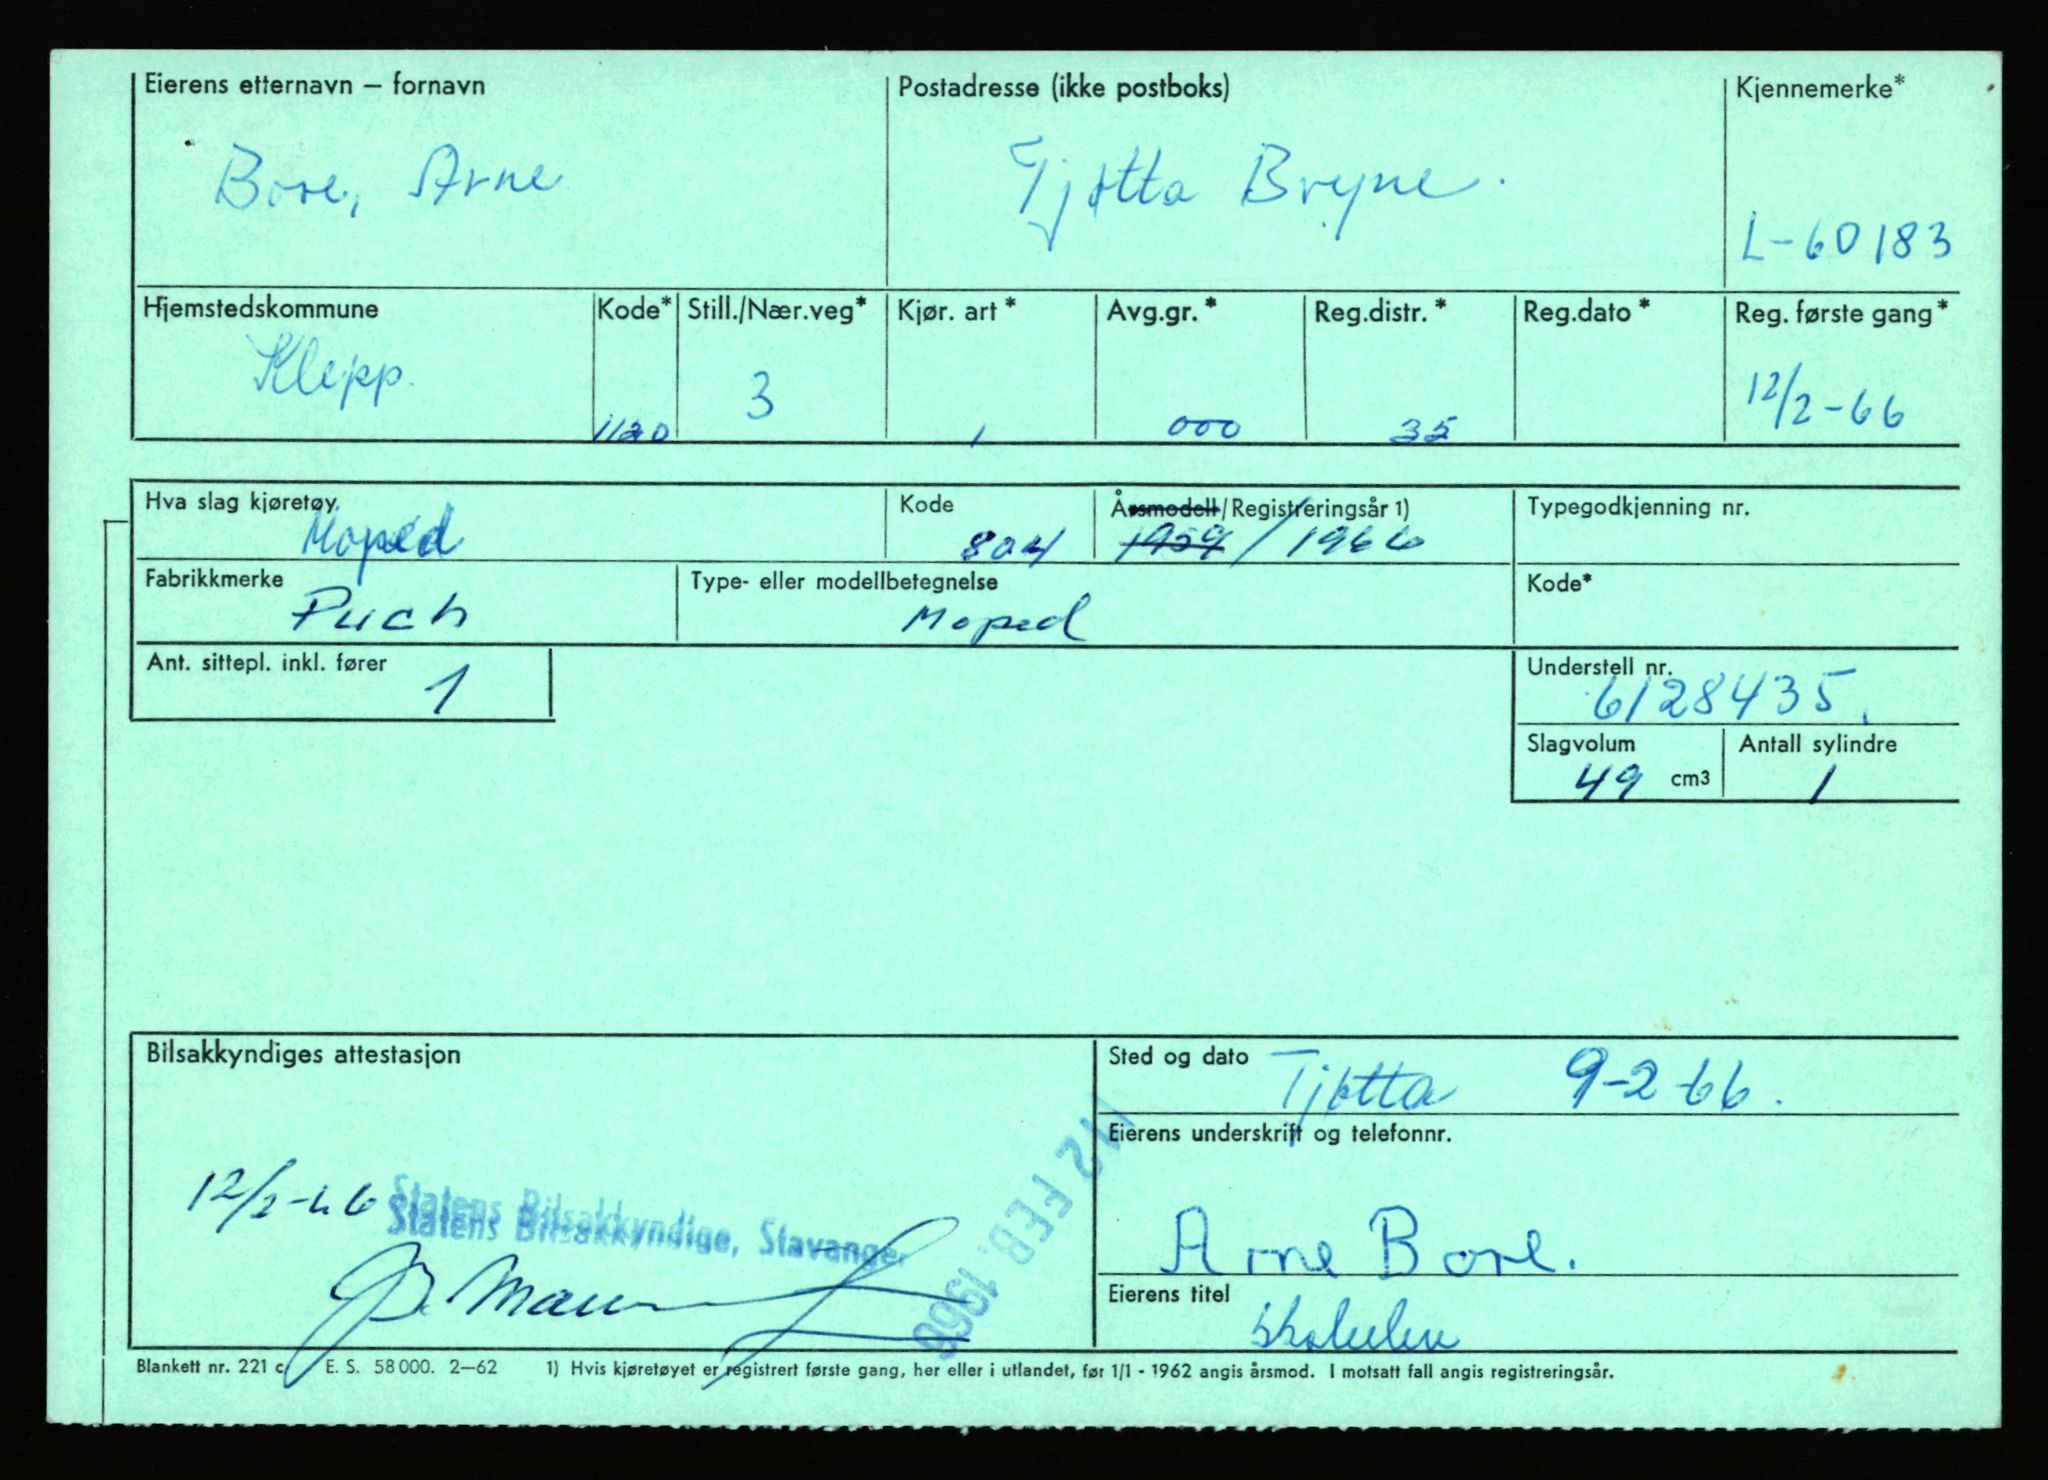 Eierens etternavn – fornavn
Bore, Arne
Postadresse (ikke postboks)
Tjøtta Bryne.
Kjennemerke*
L-60183
Hjemstedskommune
Klepp.
Kode*
1120
Still./Nær.veg*
3
Kjør. art *
1
Avg.gr. *
000
Reg.distr. *
35
Reg.dato *
Reg. første gang *
12/2-66
Hva slag kjøretøy
Moped
Kode
804
Årsmodell/Registreringsår 1)
1959 / 1966
Typegodkjenning nr.
Fabrikkmerke
Puch
Type- eller modellbetegnelse
Moped
Kode*
Ant. sittepl. inkl. fører
1
Understell nr.
6128435.
Slagvolum
49 cm3
Antall sylindre
1
Bilsakkyndiges attestasjon
12/2-66
Statens Bilsakkyndige, Stavanger
12 FEB. 1966
Sted og dato
Tjøtta 9-2-66.
Eierens underskrift og telefonnr.
Arne Bore.
Eierens titel
Skoleelev
Blankett nr. 221 c. E. S. 58000. 2—62 1) Hvis kjøretøyet er registrert første gang, her eller i utlandet, før 1/1 - 1962 angis årsmod. I motsatt fall angis registreringsår.